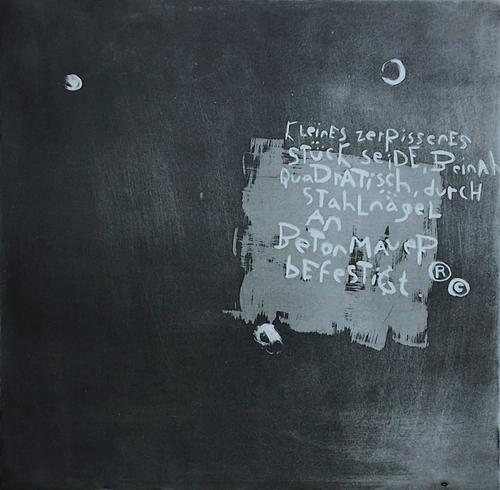 KLeinES zerrissenES
STÜCK seiDE, BeinAh
QuaDRATisch, durCH
STahLnägeL
An
BeTonMAueR
bEfestigt ® ©